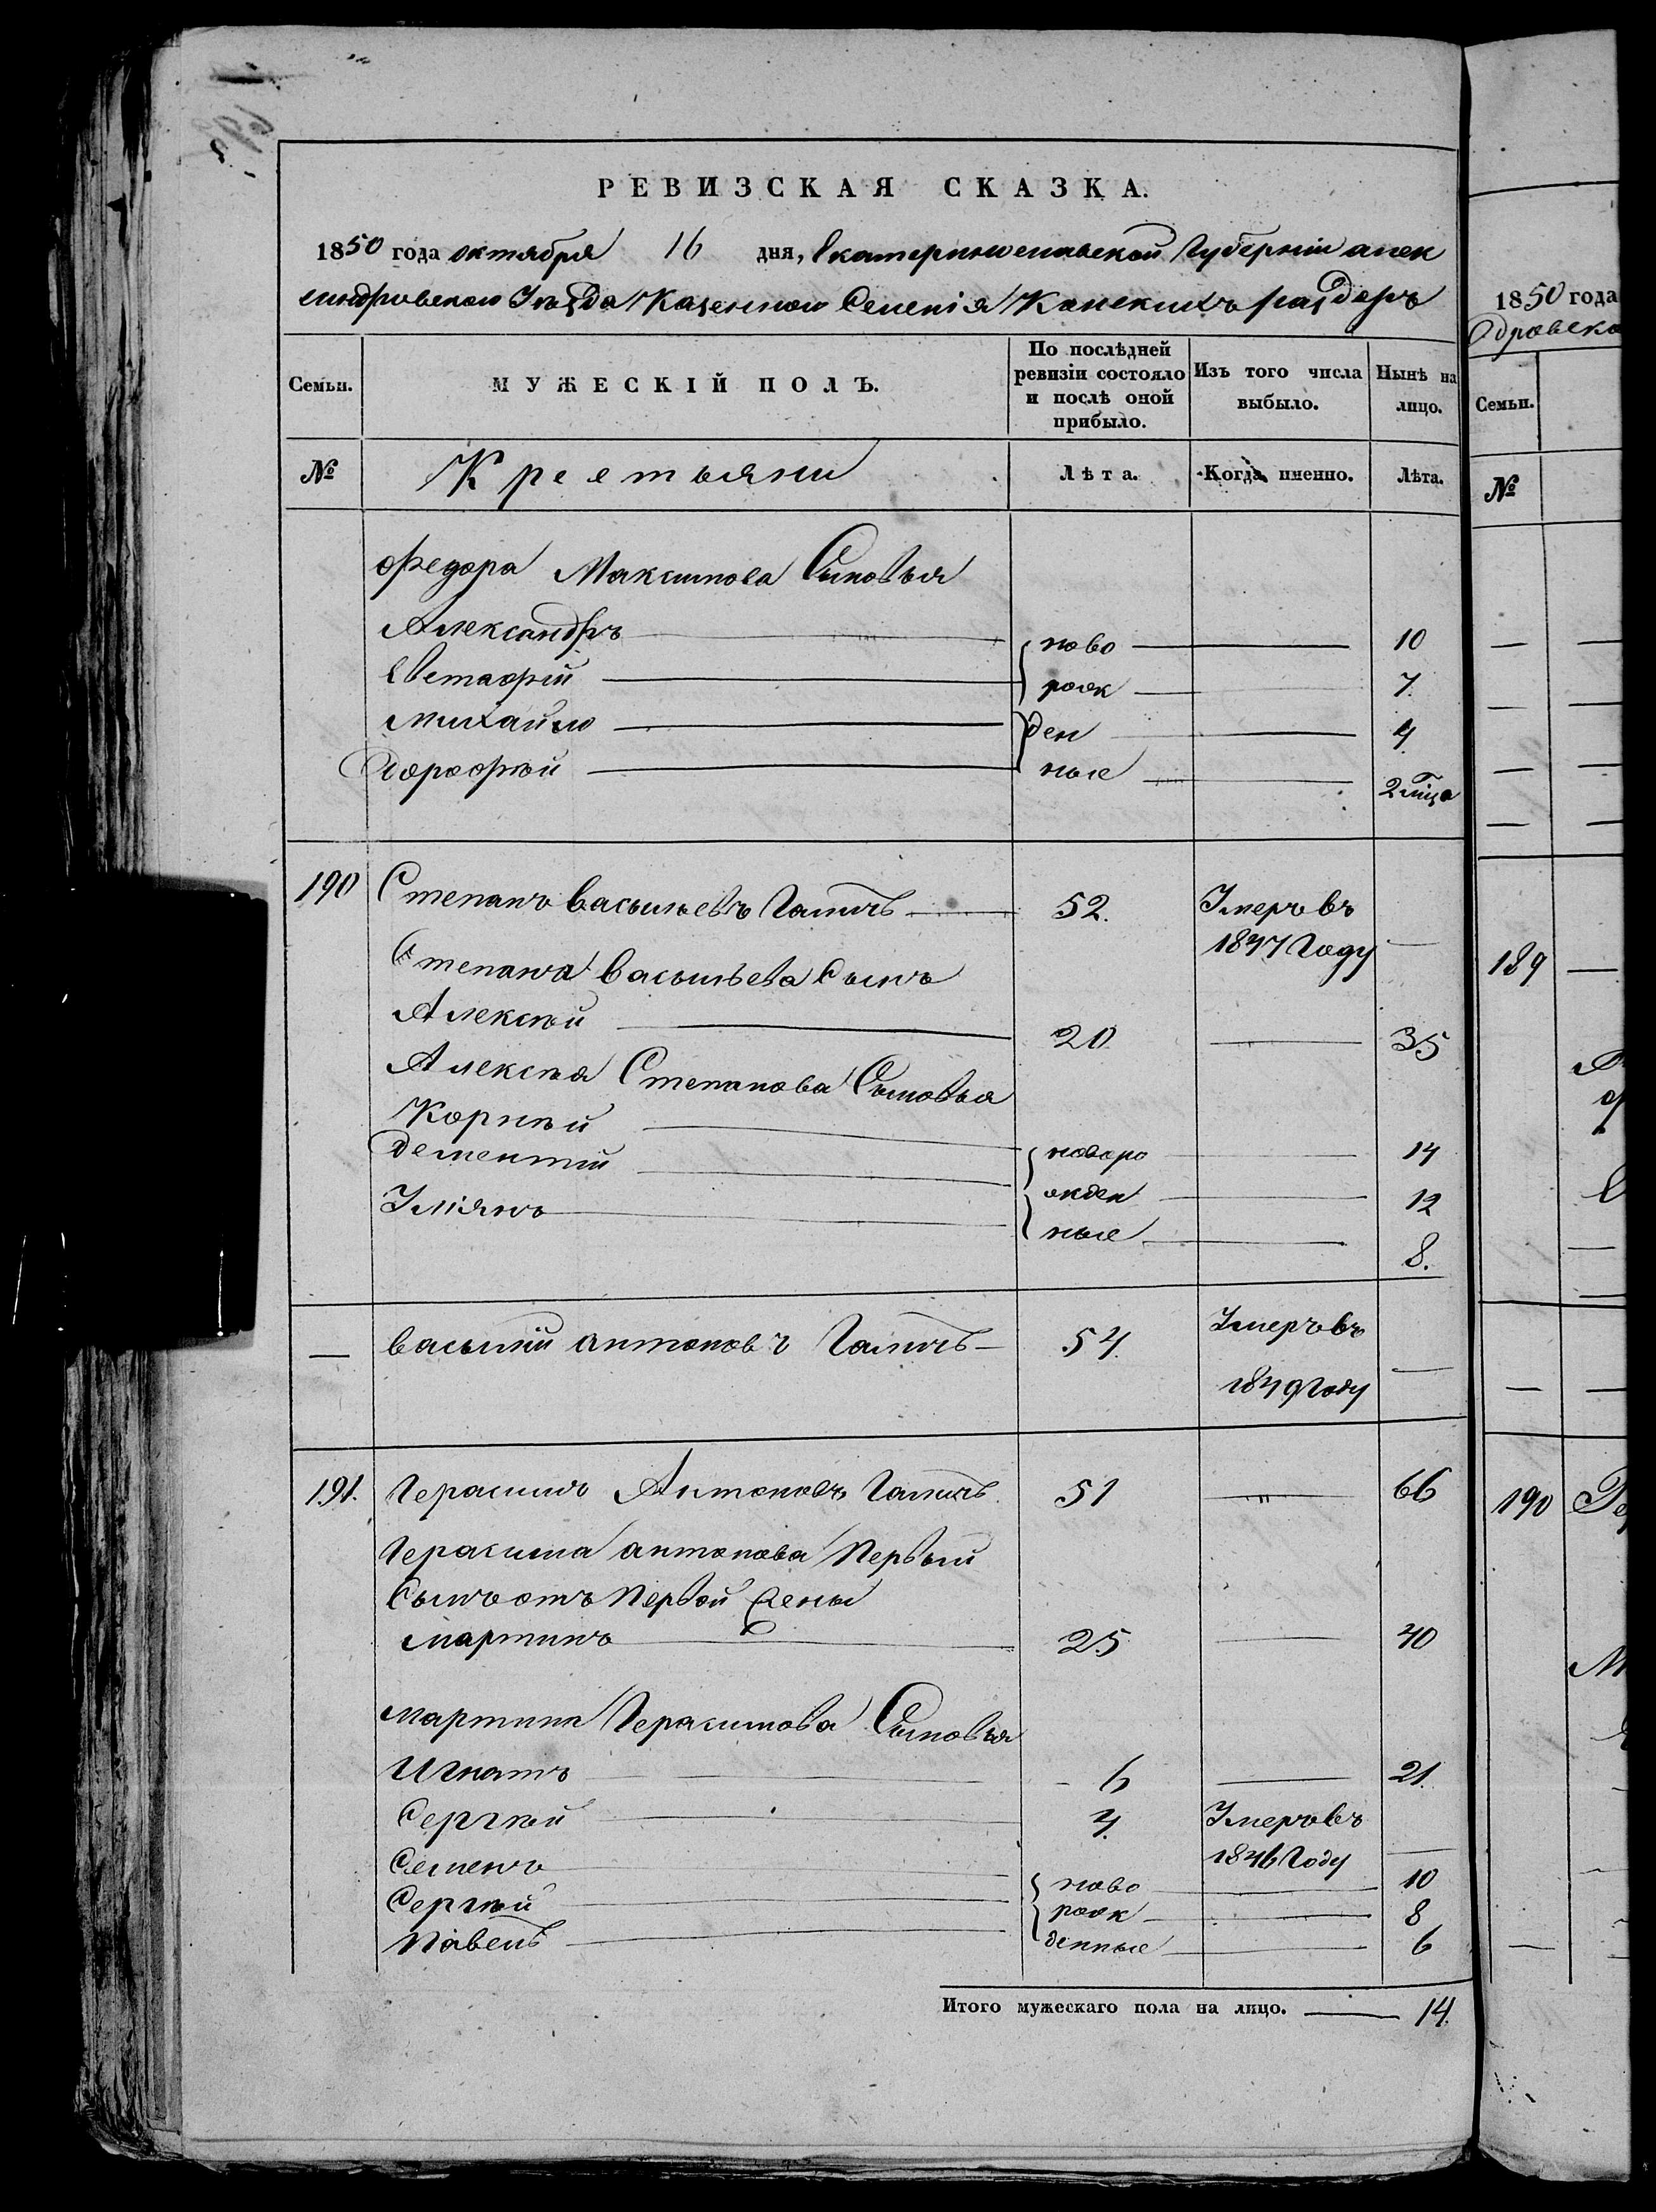 РЕВИЗСКАЯ СКАЗКА.
1850 года октября 16 дня, Екатеринославской Губерніи алек
сандровскаго Уѣзда Казеннаго Селенія Конскихъ раздоръ
Семьи. МУЖЕСКІЙ ПОЛЪ. По послѣдней ревизіи состояло и послѣ оной прибыло. Изъ того числа выбыло. Нынѣ на лицо.
№ Крестьяни Лѣта. Когда именно. Лѣта.
Федора Максимова Сыновья
Александръ ново 10
Евстафій рож 7
Михайло ден 4
Дорофѣй ные 2 мѣца
190 Степанъ Васильевъ 52. Умеръ въ
1847 Году
Степана Васильева Сынъ
Алексѣй 20 35
Алексѣя Степанова Сыновья
Корнѣй
Дементій новоро 14
Уліянъ жден 12
ные 8.
— Василій антоновъ 54. Умеръ въ
1849 Году
191. Герасимъ Антоновъ 51 66
Герасима антонова Первый
Сынъ отъ Первой жены
Мартинъ 25 40
Мартина Герасимова Сыновья
Игнатъ 6 21.
Сергѣй 4. Умеръ въ
1846 Году
Семенъ ново 10
Сергѣй рож 8
Павелъ денные 6
Итого мужескаго пола на лицо. 14.
1850 года
дровска
Семьи.
№
189
190